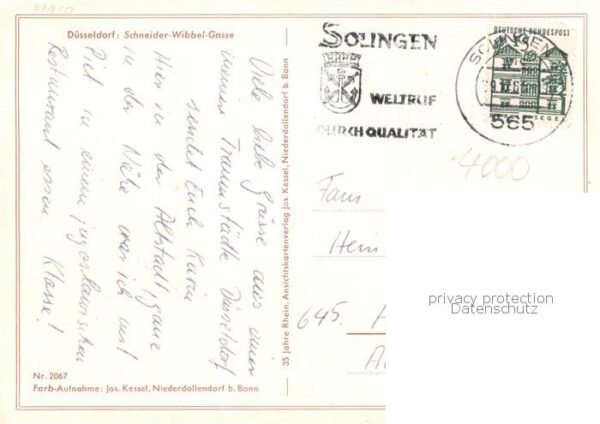 Düsseldorf: Schneider-Wibbel-Gasse
Viele liebe Grüsse aus einer
meiner Traumstädte Düsseldorf
sendet Euch Karin
Hier in der Altstadt, ganz
in der Nähe war ich mit
Piet in einem jugoslawischen
Restaurant essen. Klasse!
Nr. 2067
Farb-Aufnahme: Jos. Kessel, Niederdollendorf b. Bonn
35 Jahre Rhein. Ansichtskartenverlag Jos Kessel, Niederdollendorf b. Bonn
SOLINGEN
WELTRUF
DURCH QUALITÄT
SOLINGEN
565
DEUTSCHE BUNDESPOST
4000
Fam
Hein
645.
privacy protection
Datenschutz